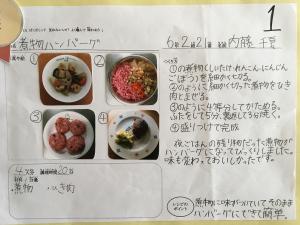 1
煮物ハンバーグ
6年2組21番 名前 内藤 千夏
作り方
①の煮物(しいたけ,れんこん,にんじん,
ごぼう)を細かく切る。
②のように細かく切った煮物をひき
肉とまぜる。
③のように4等分してかためる。
ふたをして5分、裏返して3分焼く。
④盛りつけて完成
夜ごはんの残り物だった煮物が
ハンバーグになってびっくりしました。
味も変わっておいしかったです。
①
②
③
④
4人分 調理時間20分
材料/分量
・煮物 ・ひき肉
レシピの
ポイント
煮物に味がついていてそのまま
ハンバーグにできて簡単。